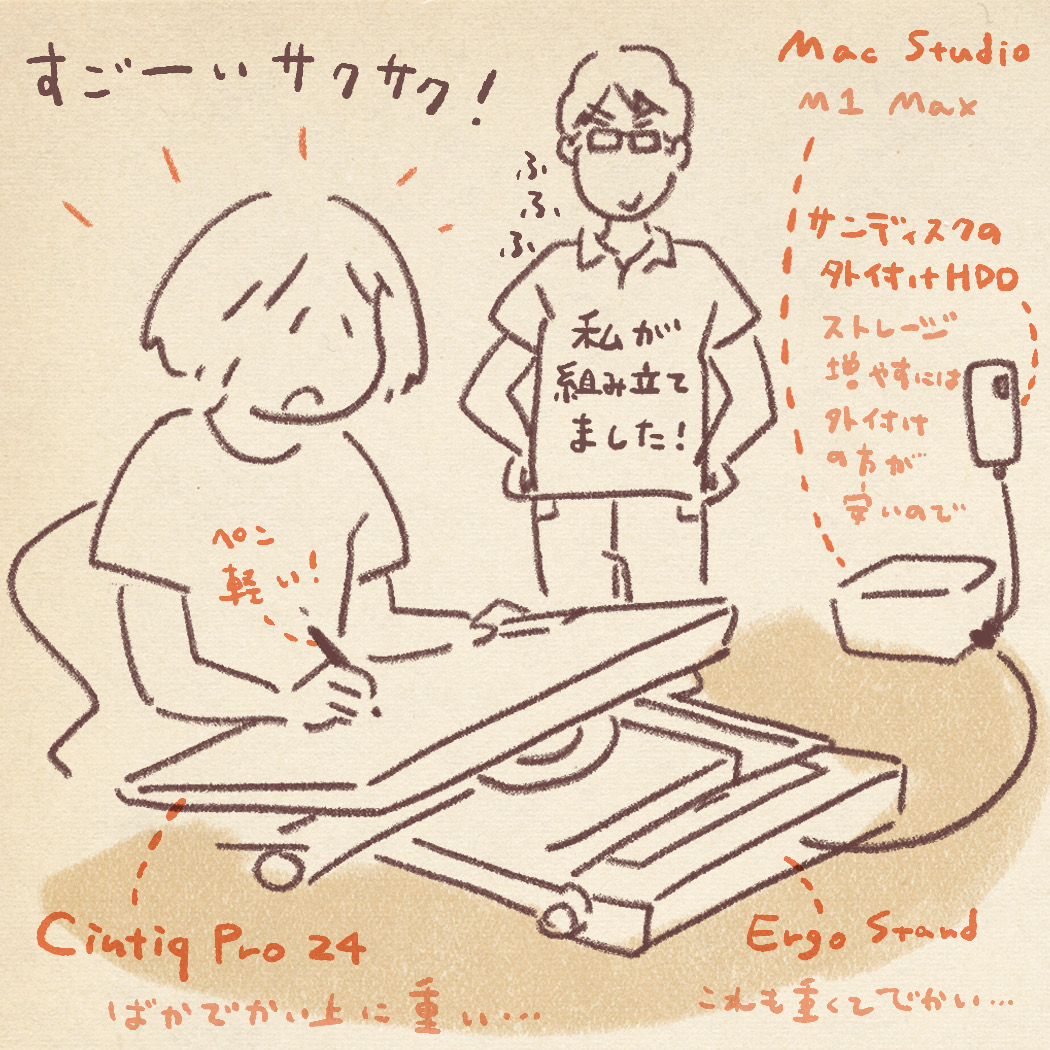 すごーいサクサク!
Mac Studio
M1 Max
ふ
ふ
ふ
サンディスクの
外付けHDD
ストレージ
増やすには
外付け
の方が
安いので
私が
組み立て
ました!
ペン
軽い!
Cintiq Pro 24
ばかでかい上に重い…
Ergo Stand
これも重くてでかい…